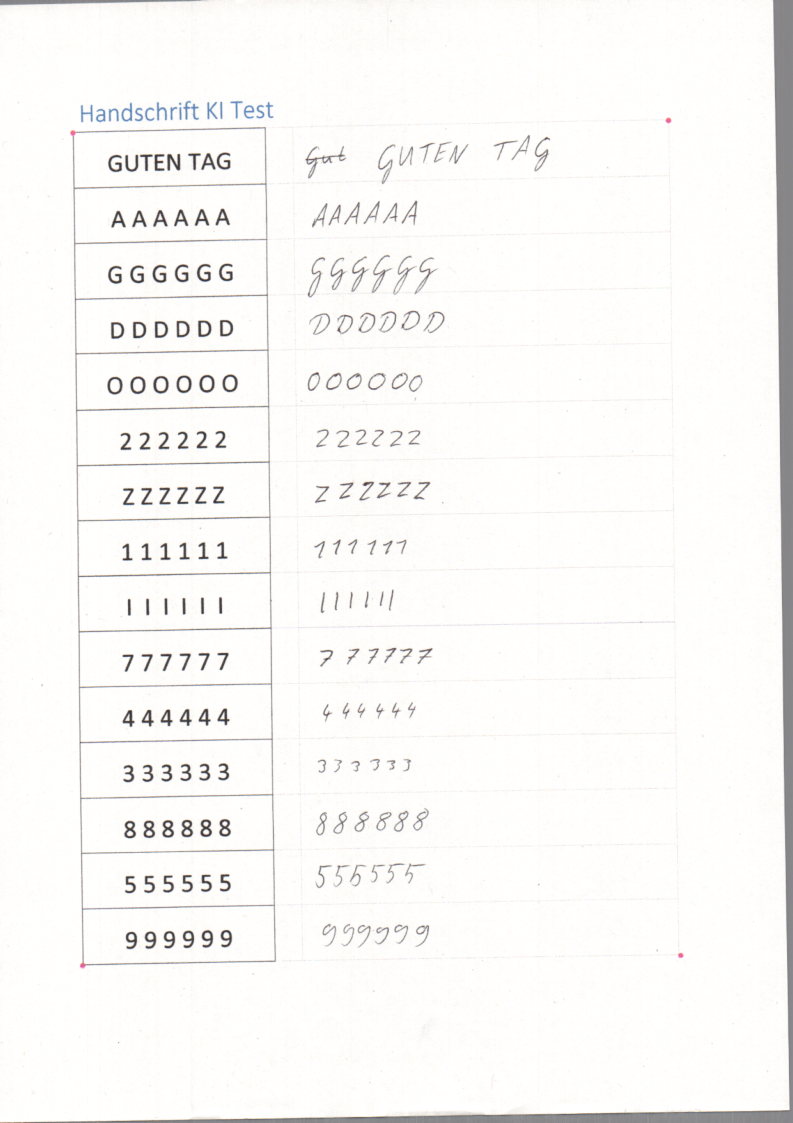 Handschrift KI Test
GUTEN TAG Gut GUTEN TAG
A A A A A A AAAAAA
G G G G G G GGGGGG
D D D D D D DDDDDD
O O O O O O OOOOOO
2 2 2 2 2 2 222222
Z Z Z Z Z Z ZZZZZZ
1 1 1 1 1 1 111111
I I I I I I IIIIII
7 7 7 7 7 7 777777
4 4 4 4 4 4 444444
3 3 3 3 3 3 333333
8 8 8 8 8 8 888888
5 5 5 5 5 5 555555
9 9 9 9 9 9 999999